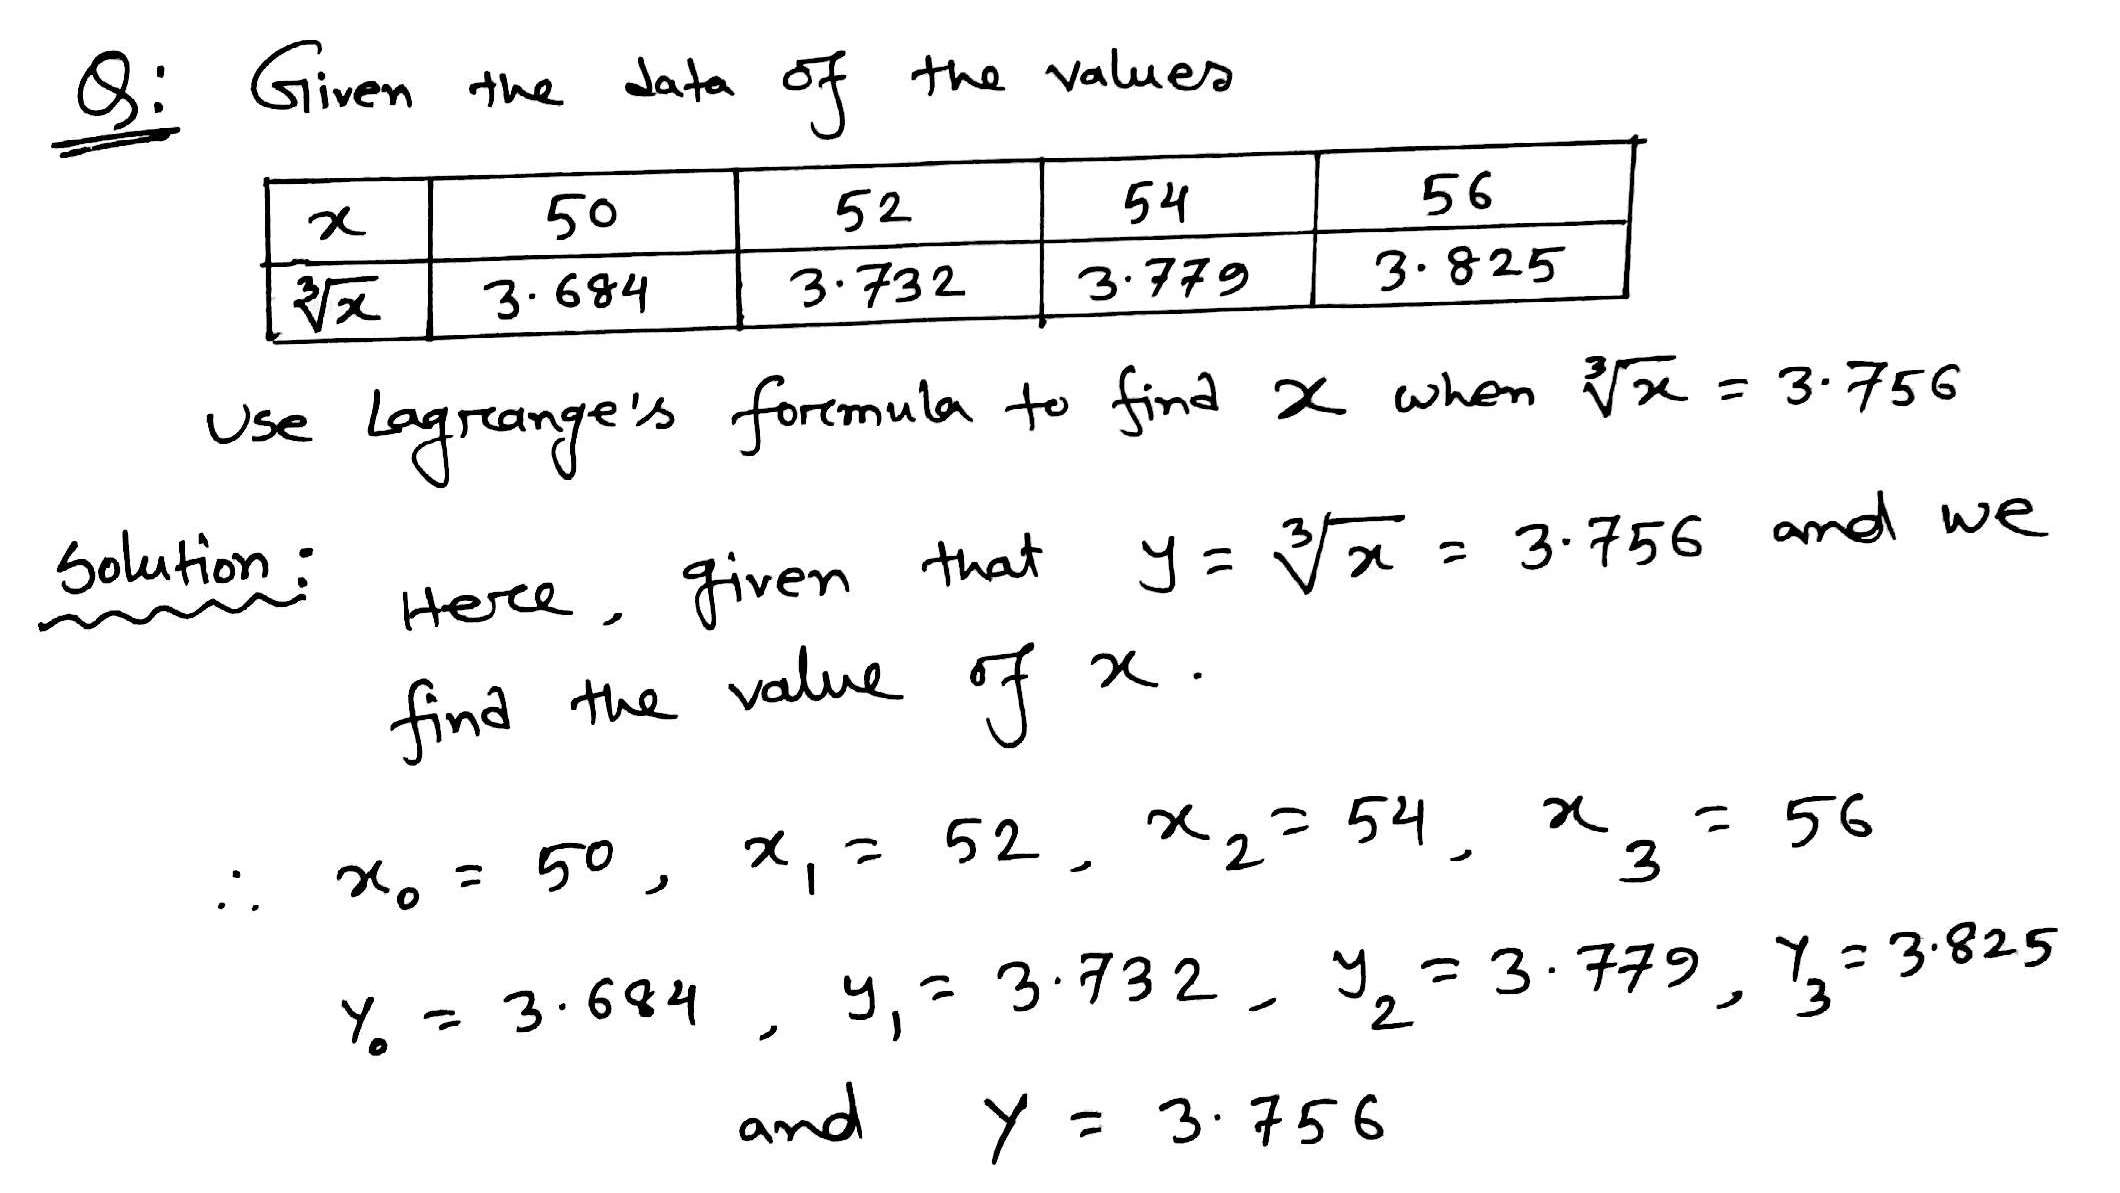 Q: Given the data of the values
x 50 52 54 56
∛x 3.684 3.732 3.779 3.825
Use Lagrange's formula to find x when ∛x = 3.756
Solution: Here, given that y = ∛x = 3.756 and we
find the value of x.
∴ x₀ = 50, x₁ = 52, x₂ = 54, x₃ = 56
Y₀ = 3.684, y₁ = 3.732, y₂ = 3.779, Y₃ = 3.825
and Y = 3.756